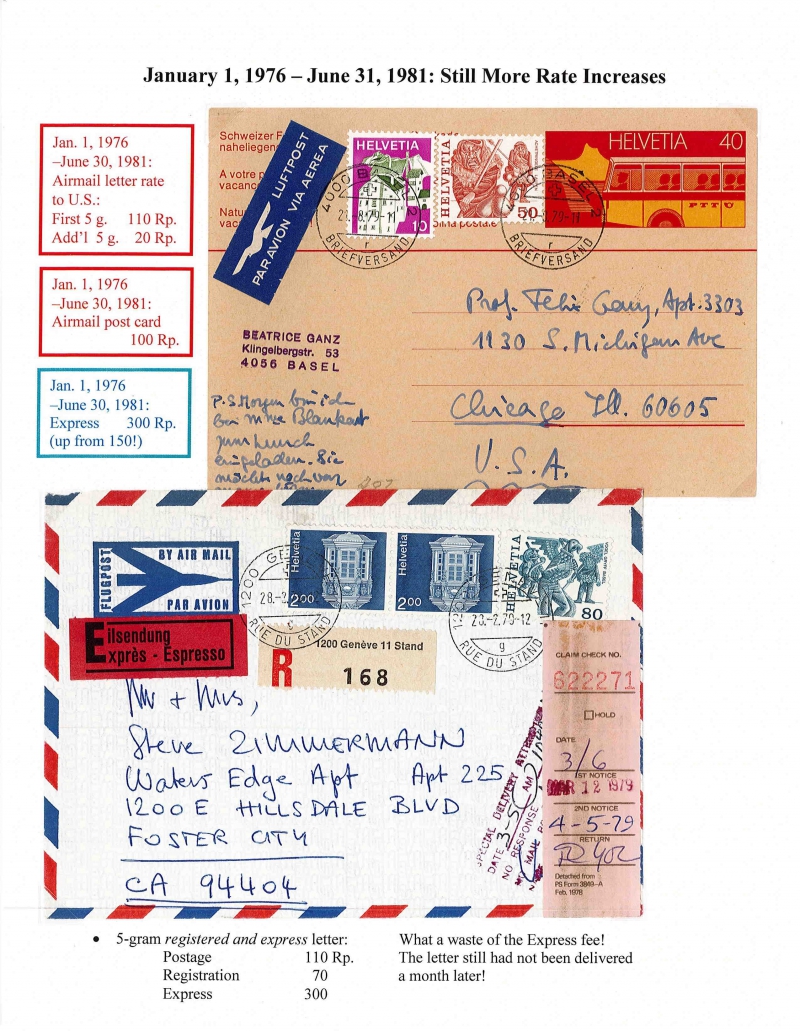 January 1, 1976 – June 31, 1981: Still More Rate Increases
Jan. 1, 1976
–June 30, 1981:
Airmail letter rate
to U.S.:
First 5 g. 110 Rp.
Add'l 5 g. 20 Rp.
Jan. 1, 1976
–June 30, 1981:
Airmail post card
100 Rp.
Jan. 1, 1976
–June 30, 1981:
Express 300 Rp.
(up from 150!)
Schweizer
naheliegen
A votre
vacanc
Natu
vac
LUFTPOST
PAR AVION VIA AEREA
HELVETIA
10
HELVETIA
50
HELVETIA 40
PTT
4000 BASEL 2
-8.79-11
r
BRIEFVERSAND
4000 BASEL 2
.8.79-11
r
BRIEFVERSAND
BEATRICE GANZ
Klingelbergstr. 53
4056 BASEL
Prof. Felix Ganz, Apt. 3303
1130 S. Michigan Ave
Chicago Ill. 60605
U.S.A.
P.S. Morgen bin ich
bei Mme Blankart
zum Lunch
eingeladen. Sie
möchte noch vor
FLUGPOST
BY AIR MAIL
PAR AVION
Helvetia
200
Helvetia
200
HELVETIA
80
1200 GE
28-
g
RUE DU STAND
1200
28-2.79-12
g
RUE DU STAND
Eilsendung
Exprès - Espresso
R
1200 Genève 11 Stand
168
Mr + Mrs,
Steve ZIMMERMANN
Waters Edge Apt Apt 225
1200 E HILLSDALE BLVD
FOSTER CITY
CA 94404
SPECIAL DELIVERY ATTEMPTED
DATE 3-5 AM
NO RESPONSE
MAIL
CLAIM CHECK NO.
622271
HOLD
DATE
3/6
1ST NOTICE
MAR 12 1979
2ND NOTICE
4-5-79
RETURN
Detached from
PS Form 3849-A
Feb. 1978
• 5-gram registered and express letter:
Postage 110 Rp.
Registration 70
Express 300
What a waste of the Express fee!
The letter still had not been delivered
a month later!